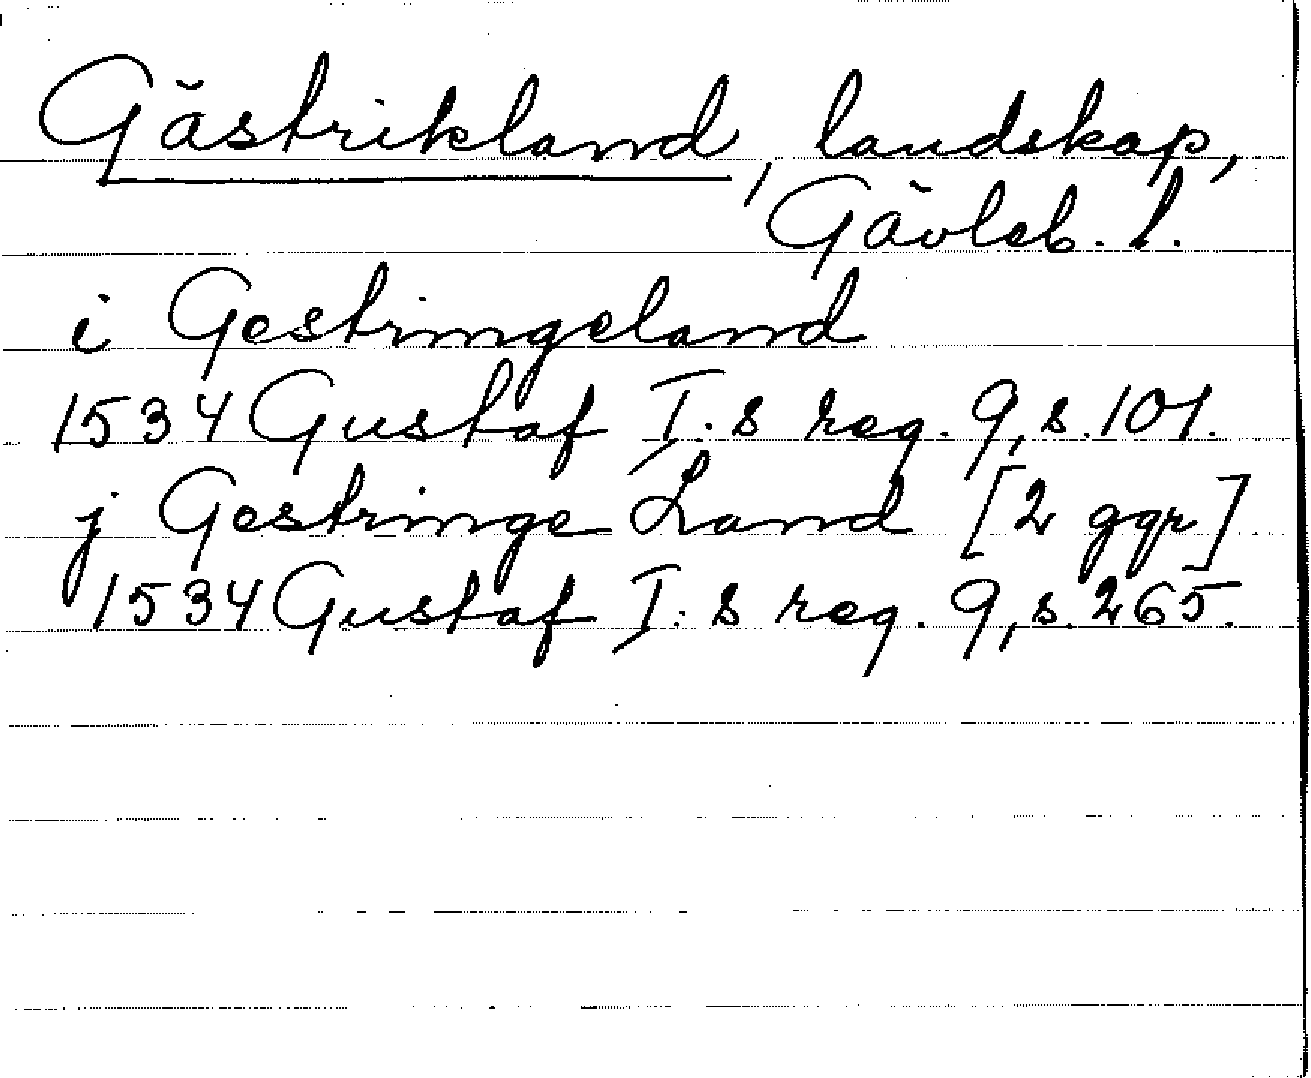 Gästrikland, landskap,
Gävleb. l.
i Gestringeland
1534 Gustaf I.s reg. 9, s. 101.
j Gestringe Land [2 ggr]
1534 Gustaf I:s reg. 9, s. 265.